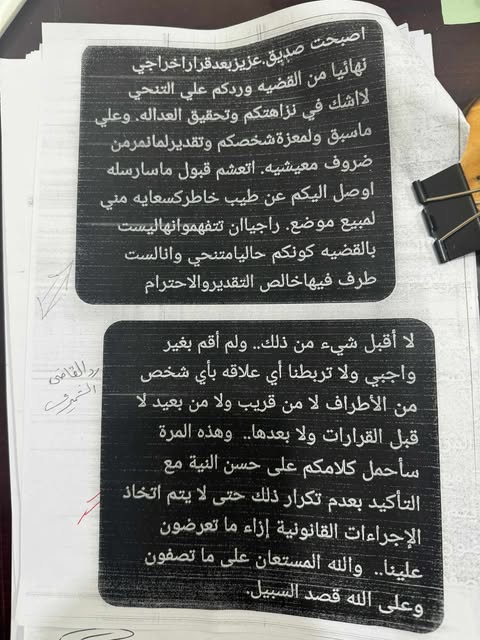 اصبحت صديق.عزيزبعدقراراخراجي
نهائيا من القضيه وردكم علي التنحي
لااشك في نزاهتكم وتحقيق العداله. وعلي
ماسبق ولمعزةشخصكم وتقديرلمانمرمن
ضروف معيشيه. اتعشم قبول ماسارسله
اوصل اليكم عن طيب خاطركسعايه مني
لمبيع موضع. راجياان تتفهموانهاليست
بالقضيه كونكم حاليامتنحي وانالست
طرف فيهاخالص التقديروالاحترام
لا أقبل شيء من ذلك.. ولم أقم بغير
واجبي ولا تربطنا أي علاقه بأي شخص
من الأطراف لا من قريب ولا من بعيد لا
قبل القرارات ولا بعدها.. وهذه المرة
سأحمل كلامكم على حسن النية مع
التأكيد بعدم تكرار ذلك حتى لا يتم اتخاذ
الإجراءات القانونية إزاء ما تعرضون
علينا.. والله المستعان على ما تصفون
وعلى الله قصد السبيل.
رد القاضي
الشريف